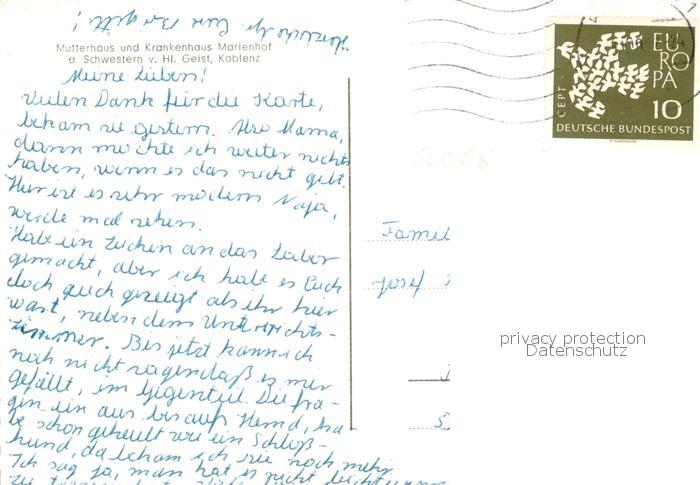 Herzliche Eure Brigitte!
Mutterhaus und Krankenhaus Marienhof
d. Schwestern v. Hl. Geist, Koblenz
Meine Lieben!
Vielen Dank für die Karte,
bekam sie gestern. Also Mama,
dann möchte ich weiter nichts
haben, wenn es das nicht gibt.
Hier ist es sehr modern. Naja,
werde mal sehen.
Habe ein Zeichen an das Labor
gemacht, aber ich habe es Euch
doch auch gezeigt als ihr hier
wart, neben dem Unterrichts-
zimmer. Bis jetzt kann ich
noch nicht sagen daß es mir
gefällt, im Gegenteil. Die
ein aus bis aufs Hemd, ha-
be schon geheult wie ein Schloß-
hund, da bekam ich sie noch mehr
Ich sag ja, man hat es nicht leicht
EUROPA
CEPT
10
DEUTSCHE BUNDESPOST
Famil
Josef
privacy protection
Datenschutz